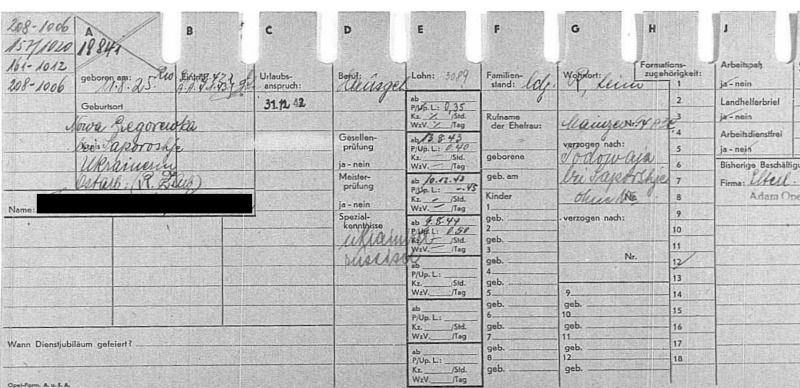 208-1006
157/1020
161-1012
208-1006
A
geboren am: 11.8.25
Geburtsort
Nowa Gregorewka
bei Saporoshje
Ukrainerin
Ostarb.
Name:
B
Eintritt
C
Urlaubs-
anspruch:
31.12.42
D
Beruf:
Gesellen-
prüfung
ja - nein
Meister-
prüfung
ja - nein
Spezial-
kenntnisse
ukrainisch
russisch
E
Lohn: 3089
ab
P/Up. L.: 0,35
Kz. /Std.
WzV. /Tag
ab 13.8.43
P/Up. L.: 0.40
Kz. /Std.
WzV. /Tag
ab 10.12.43
P/Up. L.: -.45
Kz. /Std.
WzV. /Tag
ab 9.8.44
P/Up. L.: 0.50
Kz. /Std.
WzV. /Tag
ab
P/Up. L.:
Kz. /Std.
WzV. /Tag
ab
P/Up. L.:
Kz. /Std.
WzV. /Tag
ab
P/Up. L.:
Kz. /Std.
WzV. /Tag
F
Familien-
stand: ldg.
Rufname
der Ehefrau:
geborene
geb. am
Kinder
1
geb.
2
geb.
3
geb.
4
geb.
5
geb.
6
geb.
7
geb.
8
geb.
G
Wohnort:
Nr.
verzogen nach:
Sadowaja
bei Saporoshje
ohne Nr.
verzogen nach:
Nr.
9
geb.
10
geb.
11
geb.
12
geb.
H
Formations-
zugehörigkeit:
1
2
3
4
5
6
7
8
9
10
11
12
13
14
15
16
17
18
J
Arbeitspaß
ja - nein
Landhelferbrief
ja - nein
Arbeitsdienstfrei
ja - nein
Bisherige Beschäftigu
Firma: Eltern
Adam Ope
Wann Dienstjubiläum gefeiert?
Opel-Form. A. u. S. A.